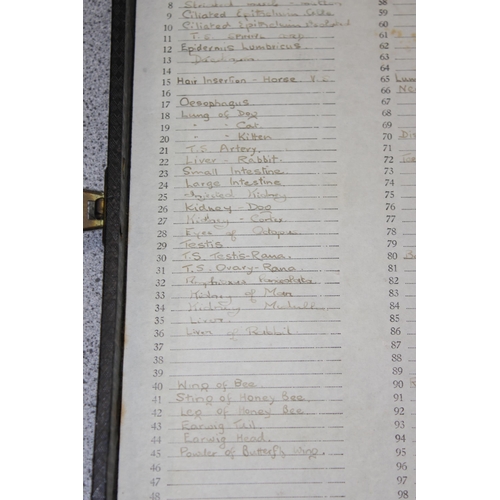 8 Striated muscle
9 Ciliated Epithelium Cells
10 Ciliated Epithelium
11 T.S.
12 Epidermis Lumbricus
13
14
15 Hair Insertion - Horse
16
17 Oesophagus
18 Lung of Dog
19 " " Cat
20 " " Kitten
21 T.S. Artery
22 Liver - Rabbit.
23 Small Intestine
24 Large Intestine
25 Injected Kidney
26 Kidney - Dog
27 Kidney - Cortex
28 Eyes of Octopus
29 Testis
30 T.S. Testis-Rana.
31 T.S. Ovary-Rana
32
33 Kidney of Man
34 Kidney Medulla
35 Liver
36 Liver of Rabbit
37
38
39
40 Wing of Bee
41 Sting of Honey Bee
42 Leg of Honey Bee
43 Earwig Tail
44 Earwig Head.
45 Powder of Butterfly Wing.
46
47
48
58
59
60
61
62
63
64
65 Lum
66
67
68
69
70
71
72
73
74
75
76
77
78
79
80
81
82
83
84
85
86
87
88
89
90
91
92
93
94
95
96
97
98